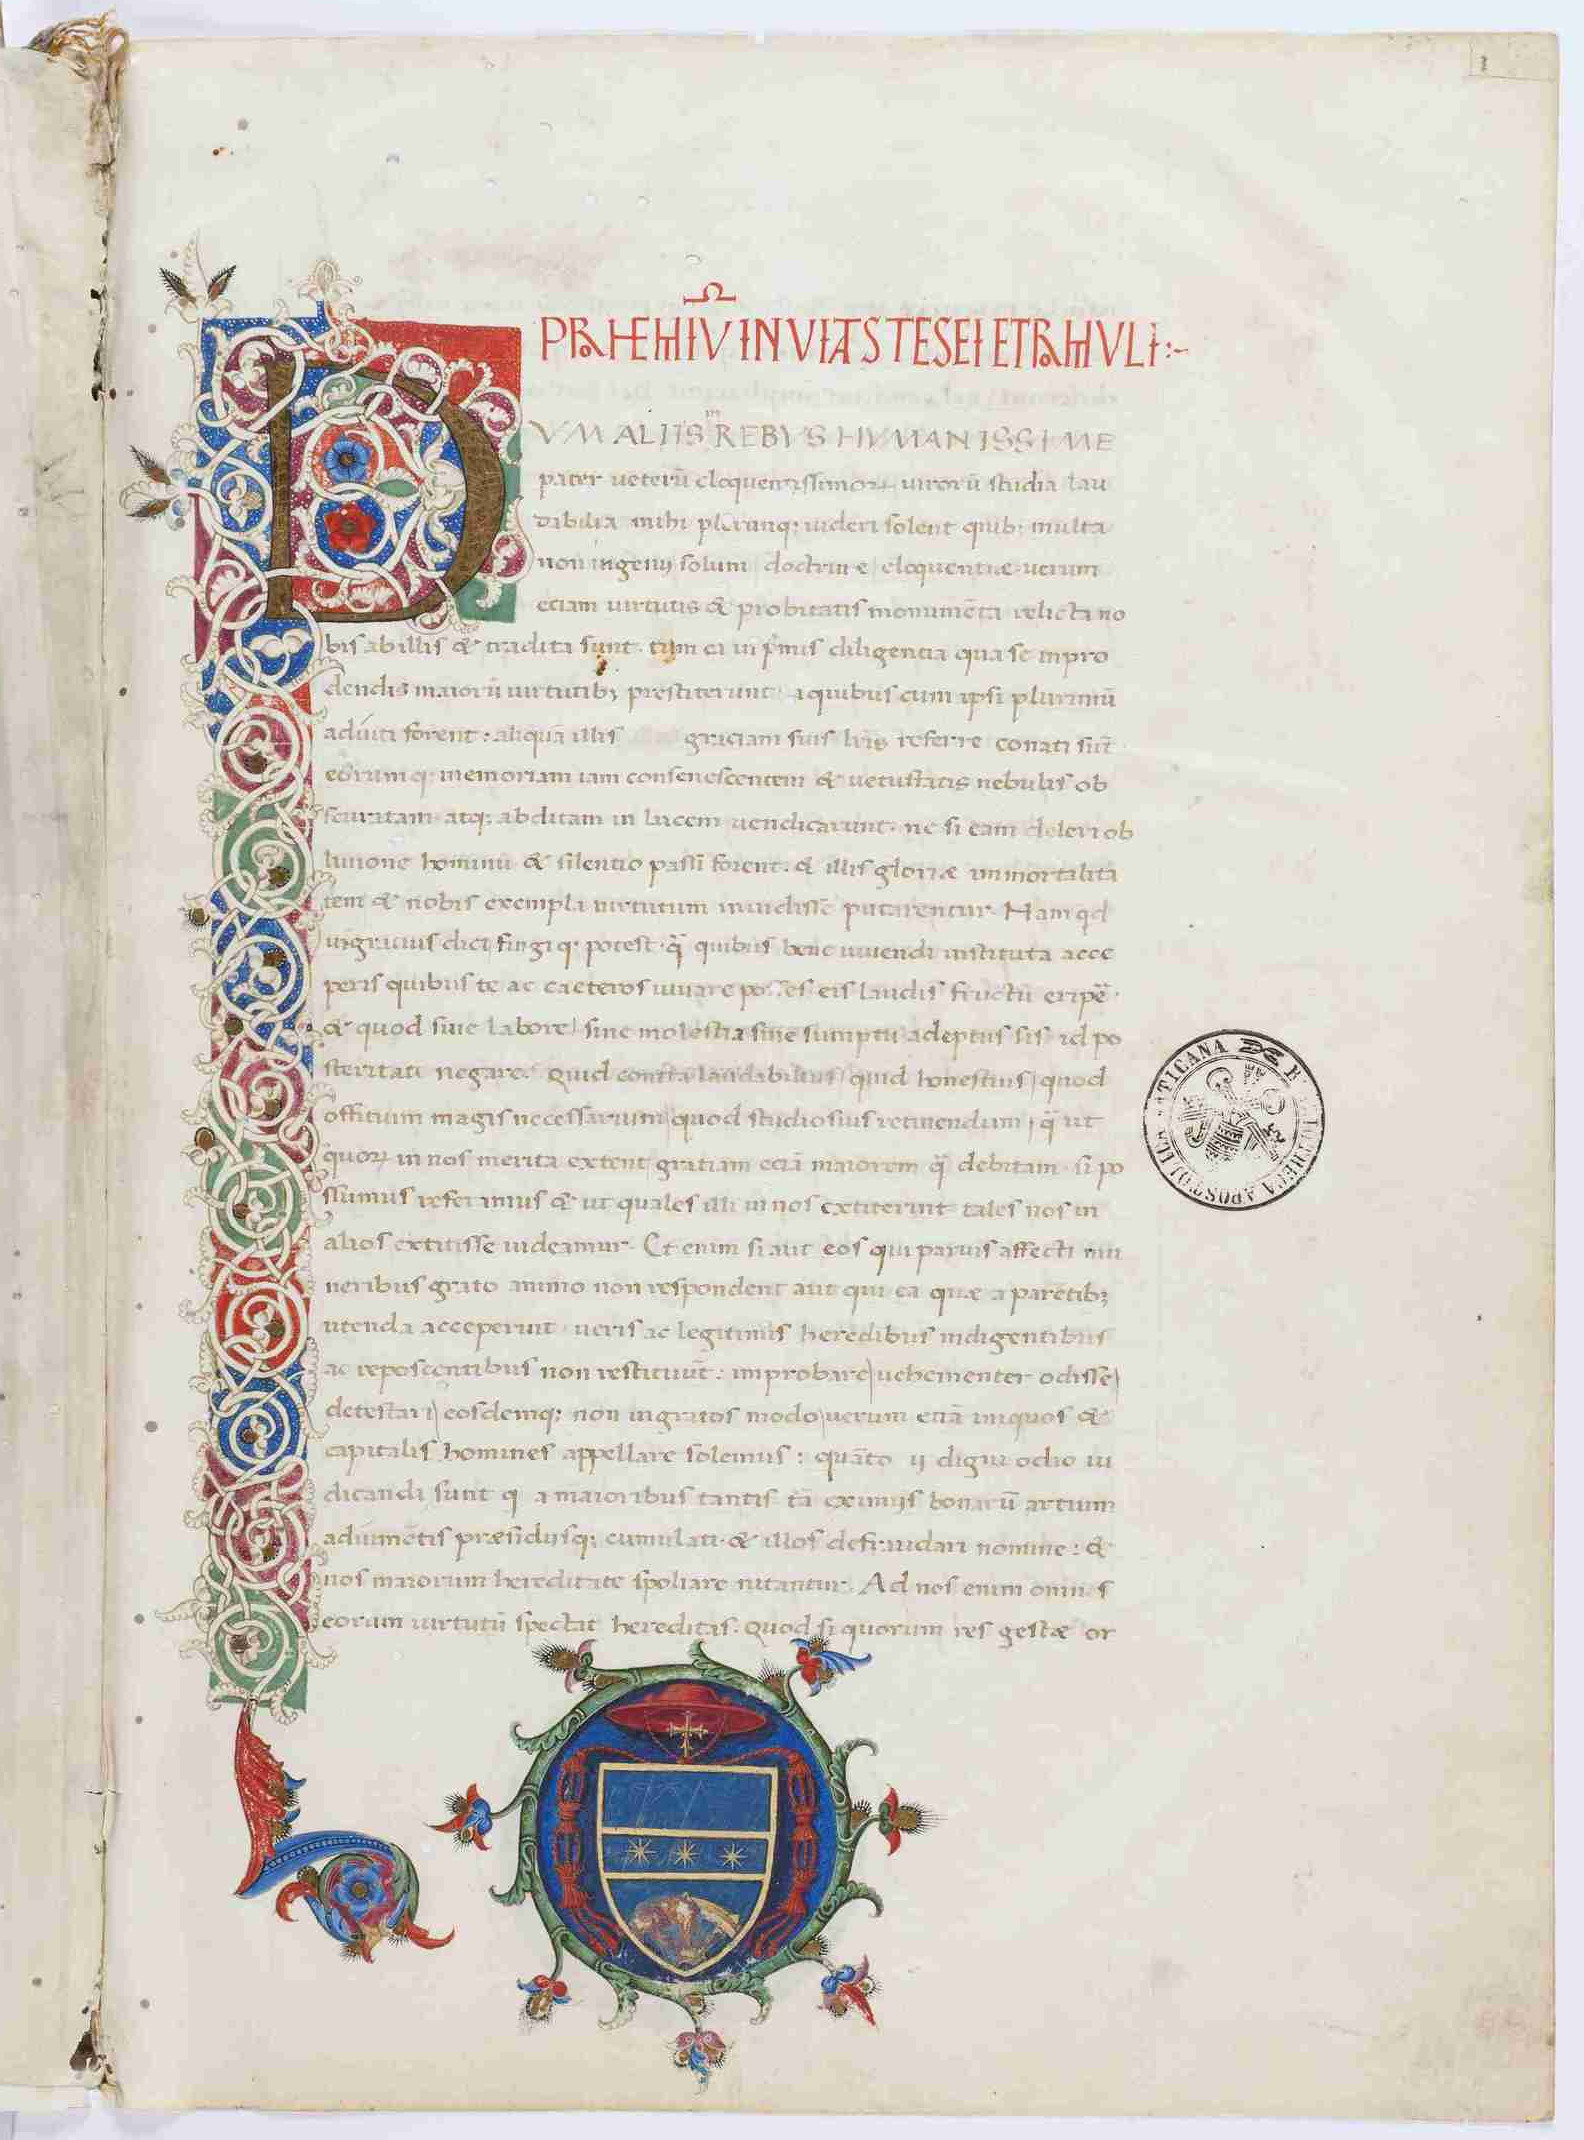 1
PROHEMIŪ IN VITAS TESEI ET ROMVLI :~
DVM ALIIS IN REBVS HVMANISSIME
pater ueterū eloquentissimoꝝ uirorū studia lau
dibilia mihi plerunq; uideri solent quib; multa
non ingenij solum doctrine eloquentiae uerum
etiam uirtutis & probitatis monumēta relicta no
bis ab illis & tradita sunt. tum ea in pͥmis diligentia qua se in pro
dendis maiorū uirtutibꝫ prestiterunt aquibus cum ipsi plurimū
adiuti forent : aliquā illis gratiam suis lr̄is referre conati sūt
eorumq; memoriam iam consenescentem & uetustatis nebulis ob
scuratam atq; abditam in lucem uendicarunt. ne si eam deleri ob
liuione hominū & silentio passi forent. & illis gloriæ immortalita
tem & nobis exempla uirtutum inuidisse putarentur. Nam qd
ingratius dici fingiq; potest. q̄ quibus bene uiuendi instituta acce
peris quibus te ac caeteros iuuare posses eis laudis fructū eripē.
& quod sine labore sine molestia sine sumptu adeptus sis id po
steritati negare. Quid contra laudabilius quid honestius quod
offitium magis necessarium quod studiosius retinendum q̄ ut
quoꝝ in nos merita extent gratiam etiā maiorem q̄ debitam si po
ssumus referimus & ut quales illi in nos extiterint tales nos in
alios extitisse uideamur. Et enim si aut eos qui paruis affecti mu
neribus grato animo non respondent aut qui ea quæ a parētibꝫ
utenda acceperunt ueris ac legitimis heredibus indigentibus
ac reposcentibus non restituūt : improbare uehementer odisse
detestari eosdemq; non ingratos modo uerum etiā iniquos &
capitalis homines appellare solemus : quāto ij digni odio iu
dicandi sunt q a maioribus tantis tā eximijs bonarū artium
adiumētis præsidijsq; cumulati. & illos defraudari nomine : &
nos maiorum hereditate spoliare nitantur. Ad nos enim omnis
eorum uirtutū spectat hereditas. Quod si quorum res gestæ or
BIBLIOTHECA APOSTOLICA VATICANA